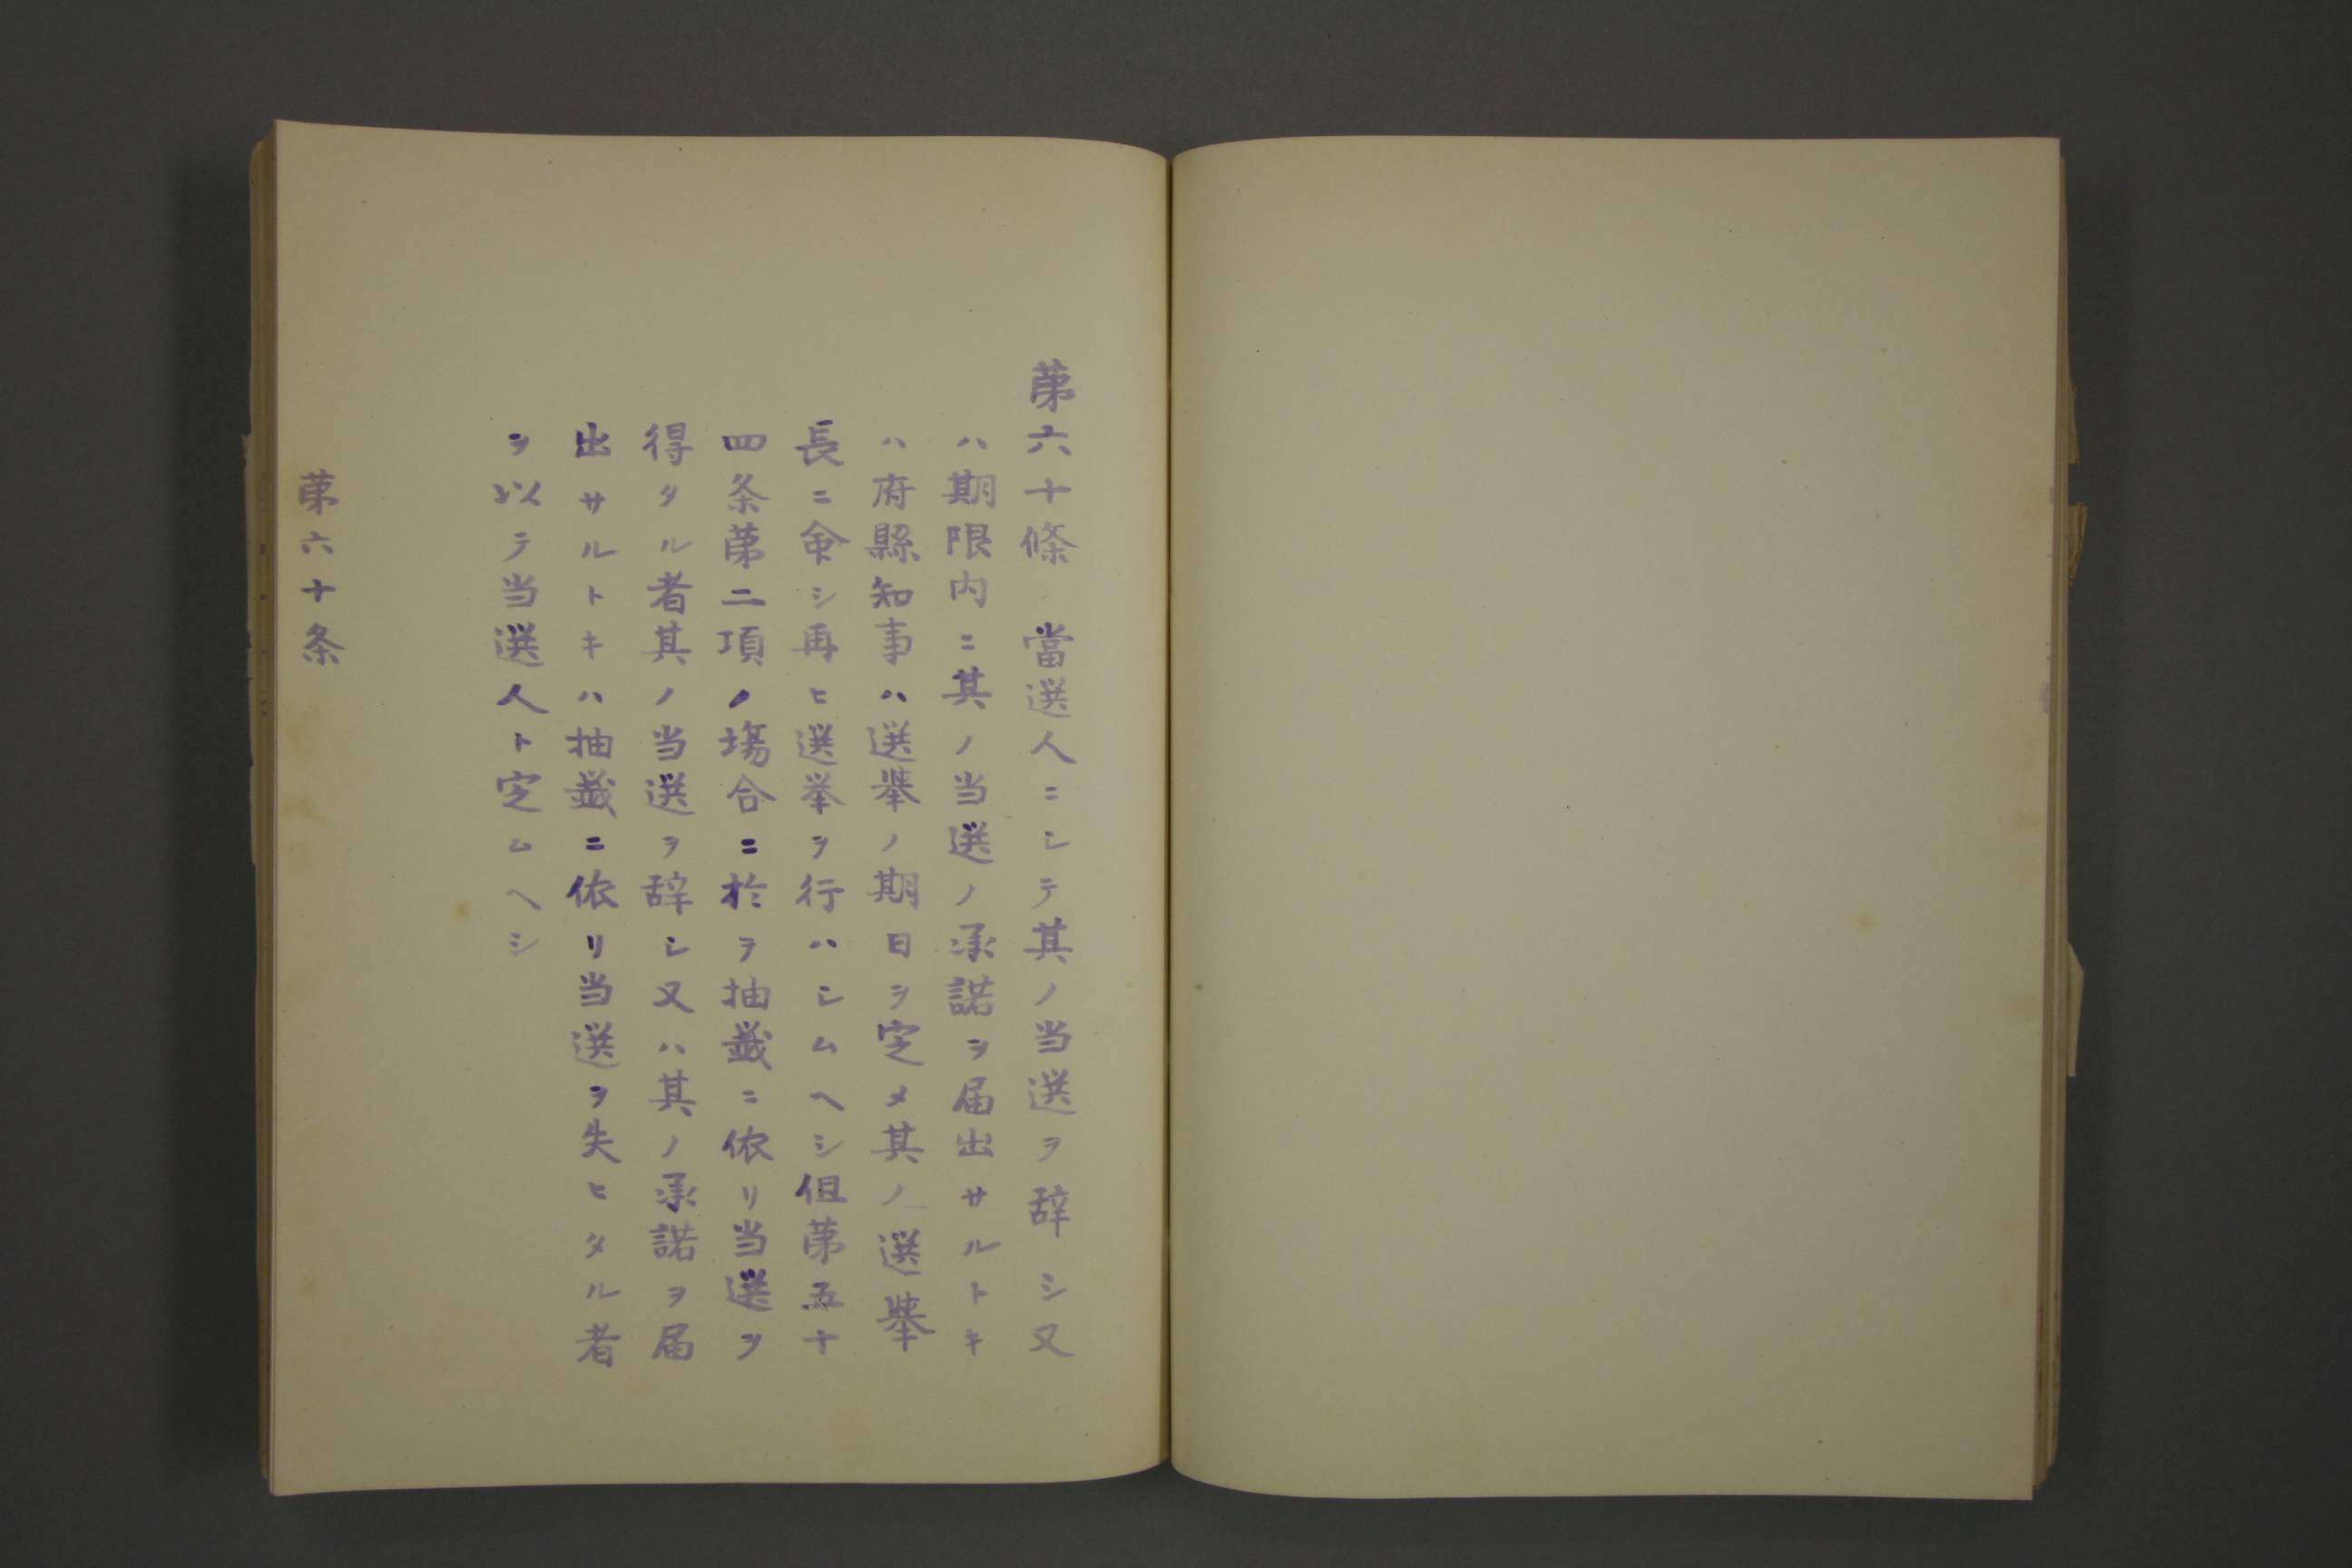 第六十條　當選人ニシテ其ノ当選ヲ辞シ又
ハ期限内ニ其ノ当選ノ承諾ヲ届出サルトキ
ハ府縣知事ハ選擧ノ期日ヲ定メ其ノ選擧
長ニ命シ再ヒ選挙ヲ行ハシムヘシ但第五十
四条第二項ノ場合ニ於ヲ抽籤ニ依リ当選ヲ
得タル者其ノ当選ヲ辞シ又ハ其ノ承諾ヲ届
出サルトキハ抽籤ニ依リ当選ヲ失ヒタル者
ヲ以テ当選人ト定ムヘシ
第六十条